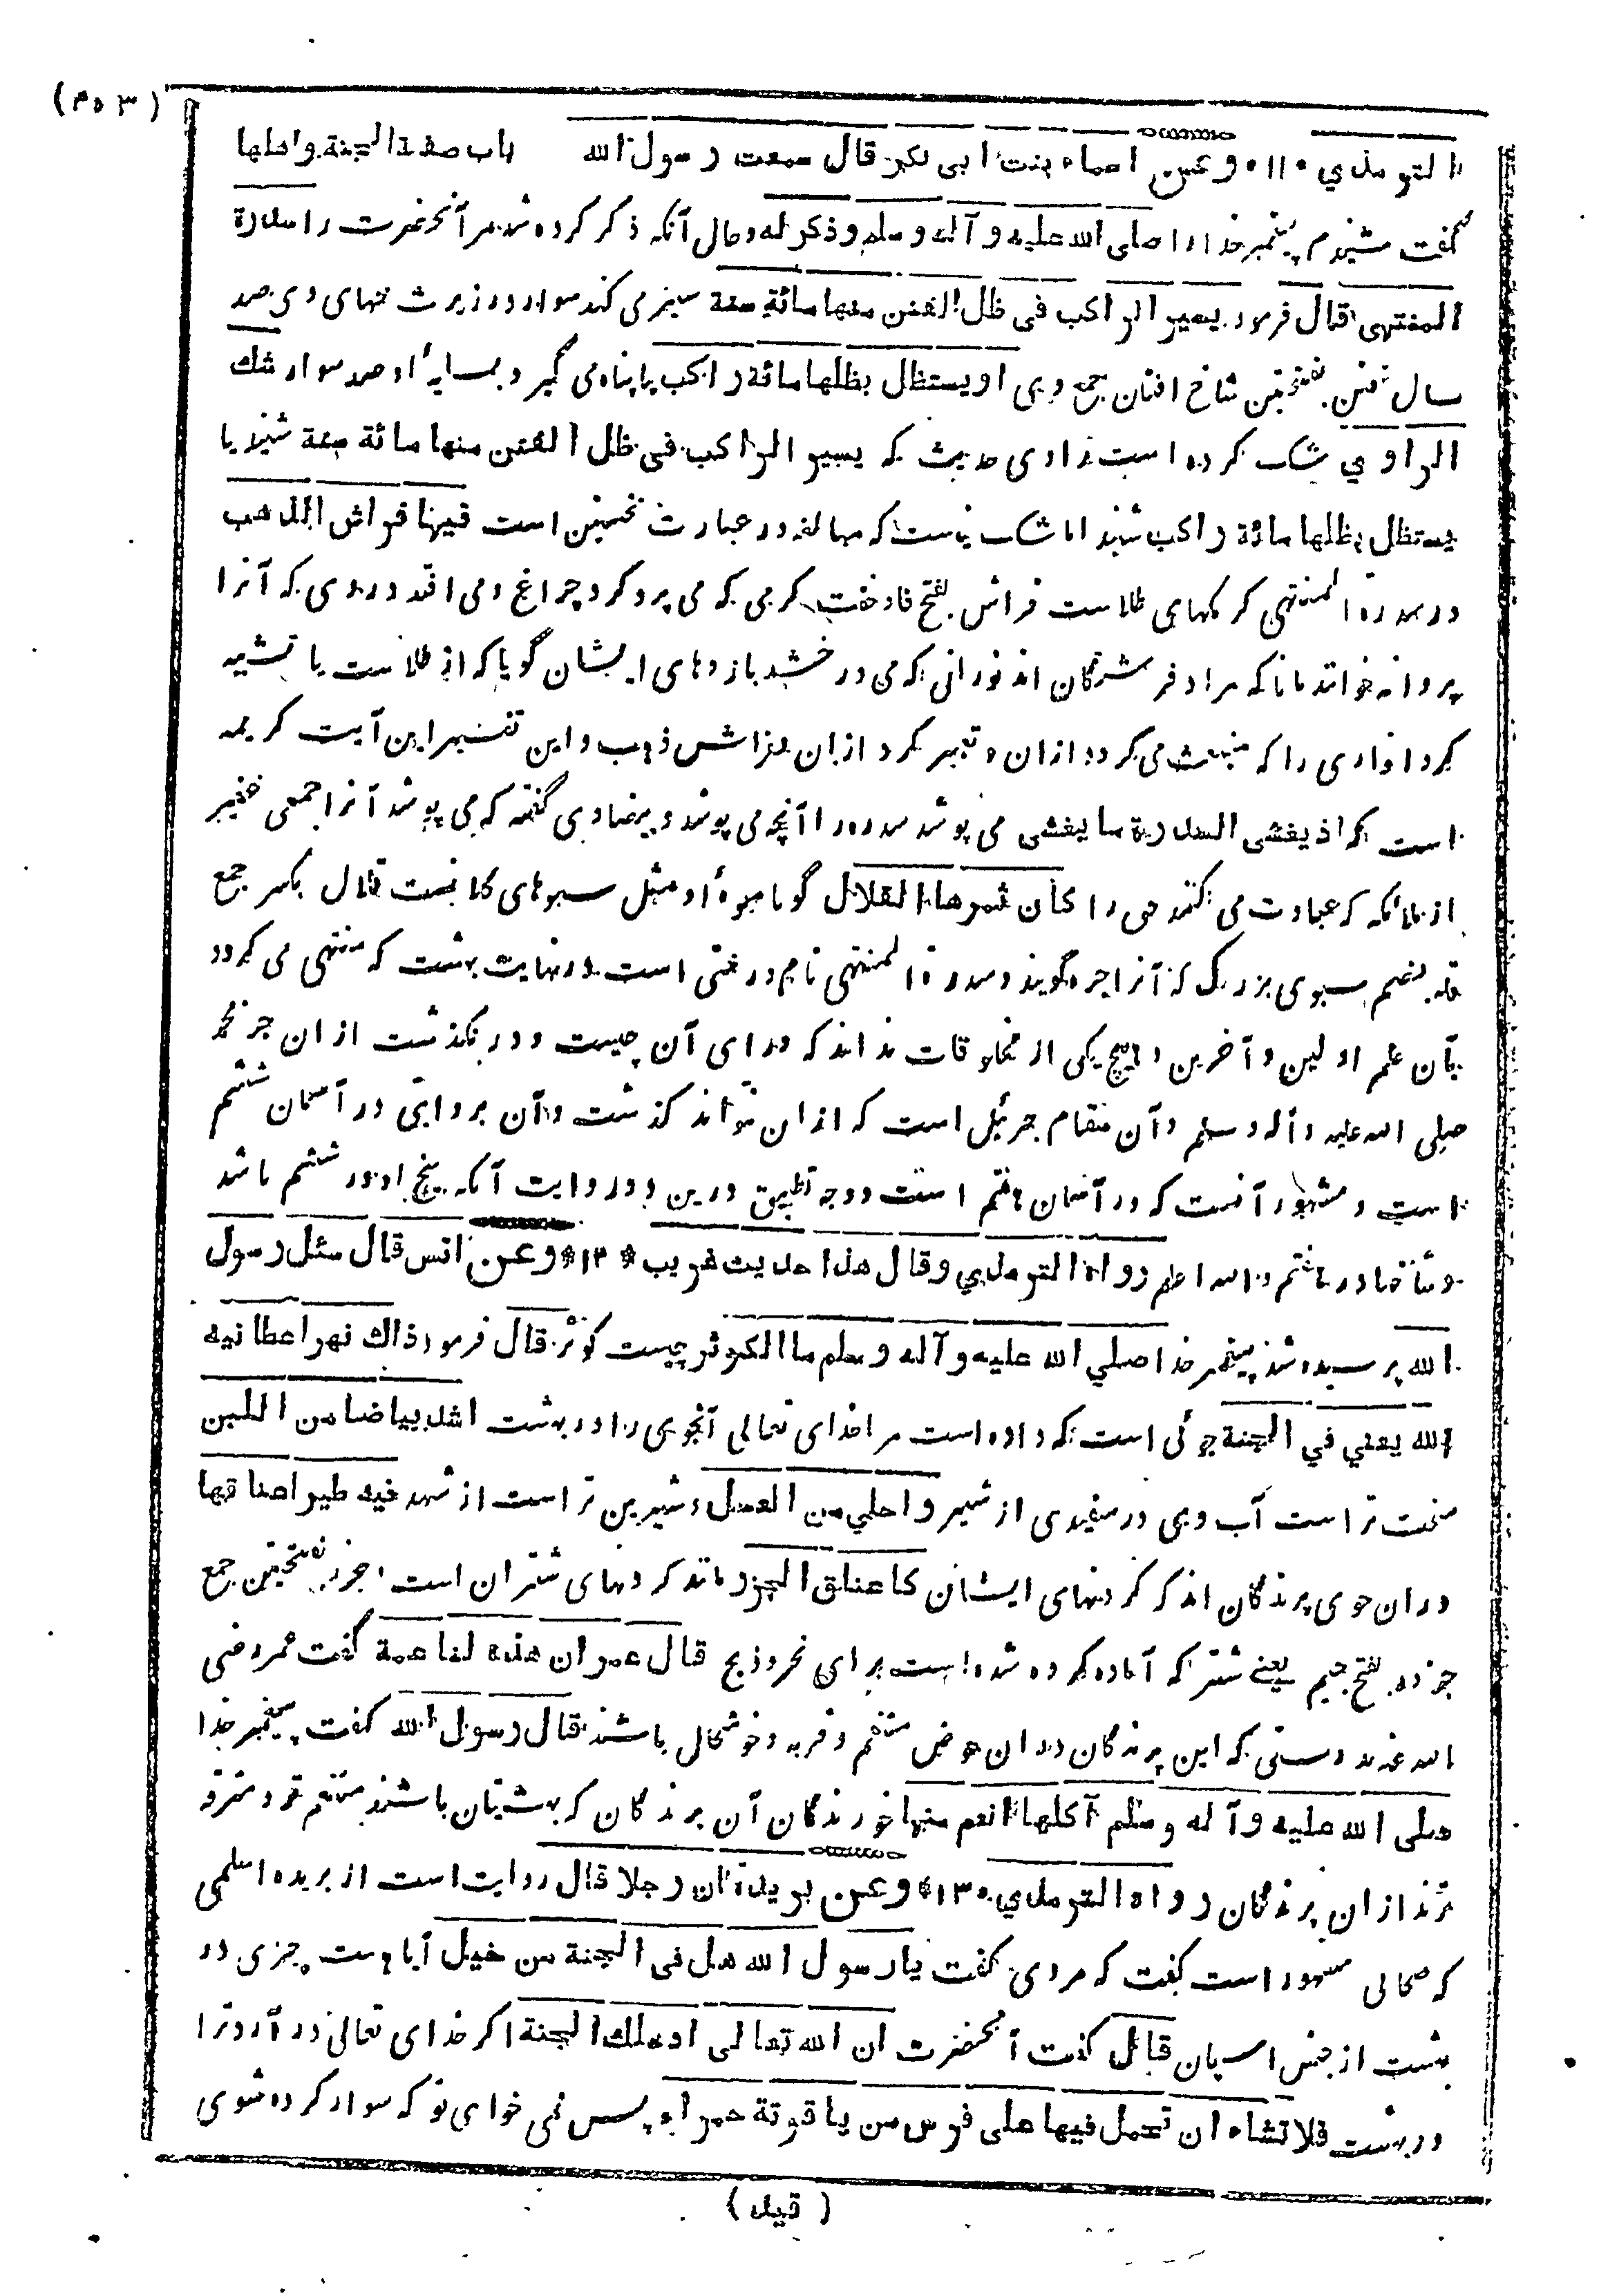 (۴۵۳)
الترمذي * ۱۱ * وعن اسماء بنت ابي بكر قال سمعت رسول الله باب صفة الجنة واهلها
گفت شنیدم پیغمبر خدا را صلى الله عليه وآله وسلم وذكر له وحال آنکه ذکر کرده شد مر آنحضرت را سدرة
المنتهى قال فرمود يسير الراكب في ظل الفنن منها مائة سنة سیر می کند سوار در زیر شاخهای وی صد
سال فنن بفتحتین شاخ افنان جمع وی او يستظل بظلها مائة راكب یا پناه می گیرد بسایهٔ او صد سوار شك
الراوي شک کرده است راوی حدیث که يسير الراكب في ظل الفنن منها مائة سنة شنید یا
يستظل بظلها مائة راكب شنید اما شک نیست که مبالغه در عبارت نخستین است فيها فراش الذهب
در سدرة المنتهی کرمکهای طلاست فراش بفتح فا و خفت را کرمی که می پرد گرد چراغ و می افتد در وی که آنرا
پروانه خوانند مانا که مراد فرشتگان اند نورانی که می درخشد بازوهای ایشان گویا که از طلاست یا تشبیه
کرد انواری را که منبعث می گردد ازان و تعبیر کرد ازان بفراش ذهب و این تفسیر این آیت کریمه
است که اذ يغشى السدرة ما يغشى می پوشد سدره را آنچه می پوشد و بیضاوی گفته که می پوشد آنرا جمعی غفیر
از ملائکه که عبادت می کنند حق را كأن ثمرها القلال گویا میوهٔ او مثل سبوهای کلانست قلال بکسر جمع
قله بضم سبوی بزرگ که آنرا جره گویند و سدرة المنتهی نام درختی است در نهایت بهشت که منتهی می گردد
بآن علم اولین و آخرین و هیچ یکی از مخلوقات نداند که ورای آن چیست و در نگذشت ازان جز محمد
صلى الله عليه وآله وسلم و آن مقام جبرئیل است که ازان نتواند گذشت و آن بروایتی در آسمان ششم
است و مشهور آنست که در آسمان هفتم است و وجه تطبیق درین دو روایت آنکه بیخ او در ششم باشد
و شاخها در هفتم والله اعلم رواه الترمذي وقال هذا حديث غريب * ۱۲ * وعن انس قال سئل رسول
الله پرسیده شد پیغمبر خدا صلى الله عليه وآله وسلم ما الكوثر چیست کوثر قال فرمود ذاك نهر اعطانيه
الله يعني في الجنة جوئی است که داده است مرا خدای تعالی آنجوی را در بهشت اشد بياضا من اللبن
سخت تر است آب وی در سفیدی از شیر واحلى من العسل و شیرین تر است از شهد فيه طير اعناقها
دران جوی پرندگان اند که گردنهای ایشان كاعناق الجزر مانند گردنهای شتران است جزر بضمتین جمع
جزور بفتح جیم یعنے شتر که آماده کرده شده است برای نحر و ذبح قال عمر ان هذه لناعمة گفت عمر رضی
الله عنه بدرستی که این پرندگان دران حوض متنعم و فربه و خوشحال باشند قال رسول الله گفت پیغمبر خدا
صلى الله عليه وآله وسلم آكلها انعم منها خورندگان آن پرندگان که بهشتیان باشند متنعم تر و مترفه
ترند ازان پرندگان رواه الترمذي * ۱۳ * وعن بريدة ان رجلا قال روایت است از بریده اسلمی
که صحابی مشهور است گفت که مردی گفت يا رسول الله هل في الجنة من خيل آیا هست چیزی در
بهشت از جنس اسپان قال گفت آنحضرت ان الله تعالى ادخلك الجنة اگر خدای تعالی در آرد ترا
در بهشت فلا تشاء ان تحمل فيها على فرس من ياقوتة حمراء پس نمی خواهی تو که سوار کرده شوی
(قیل)